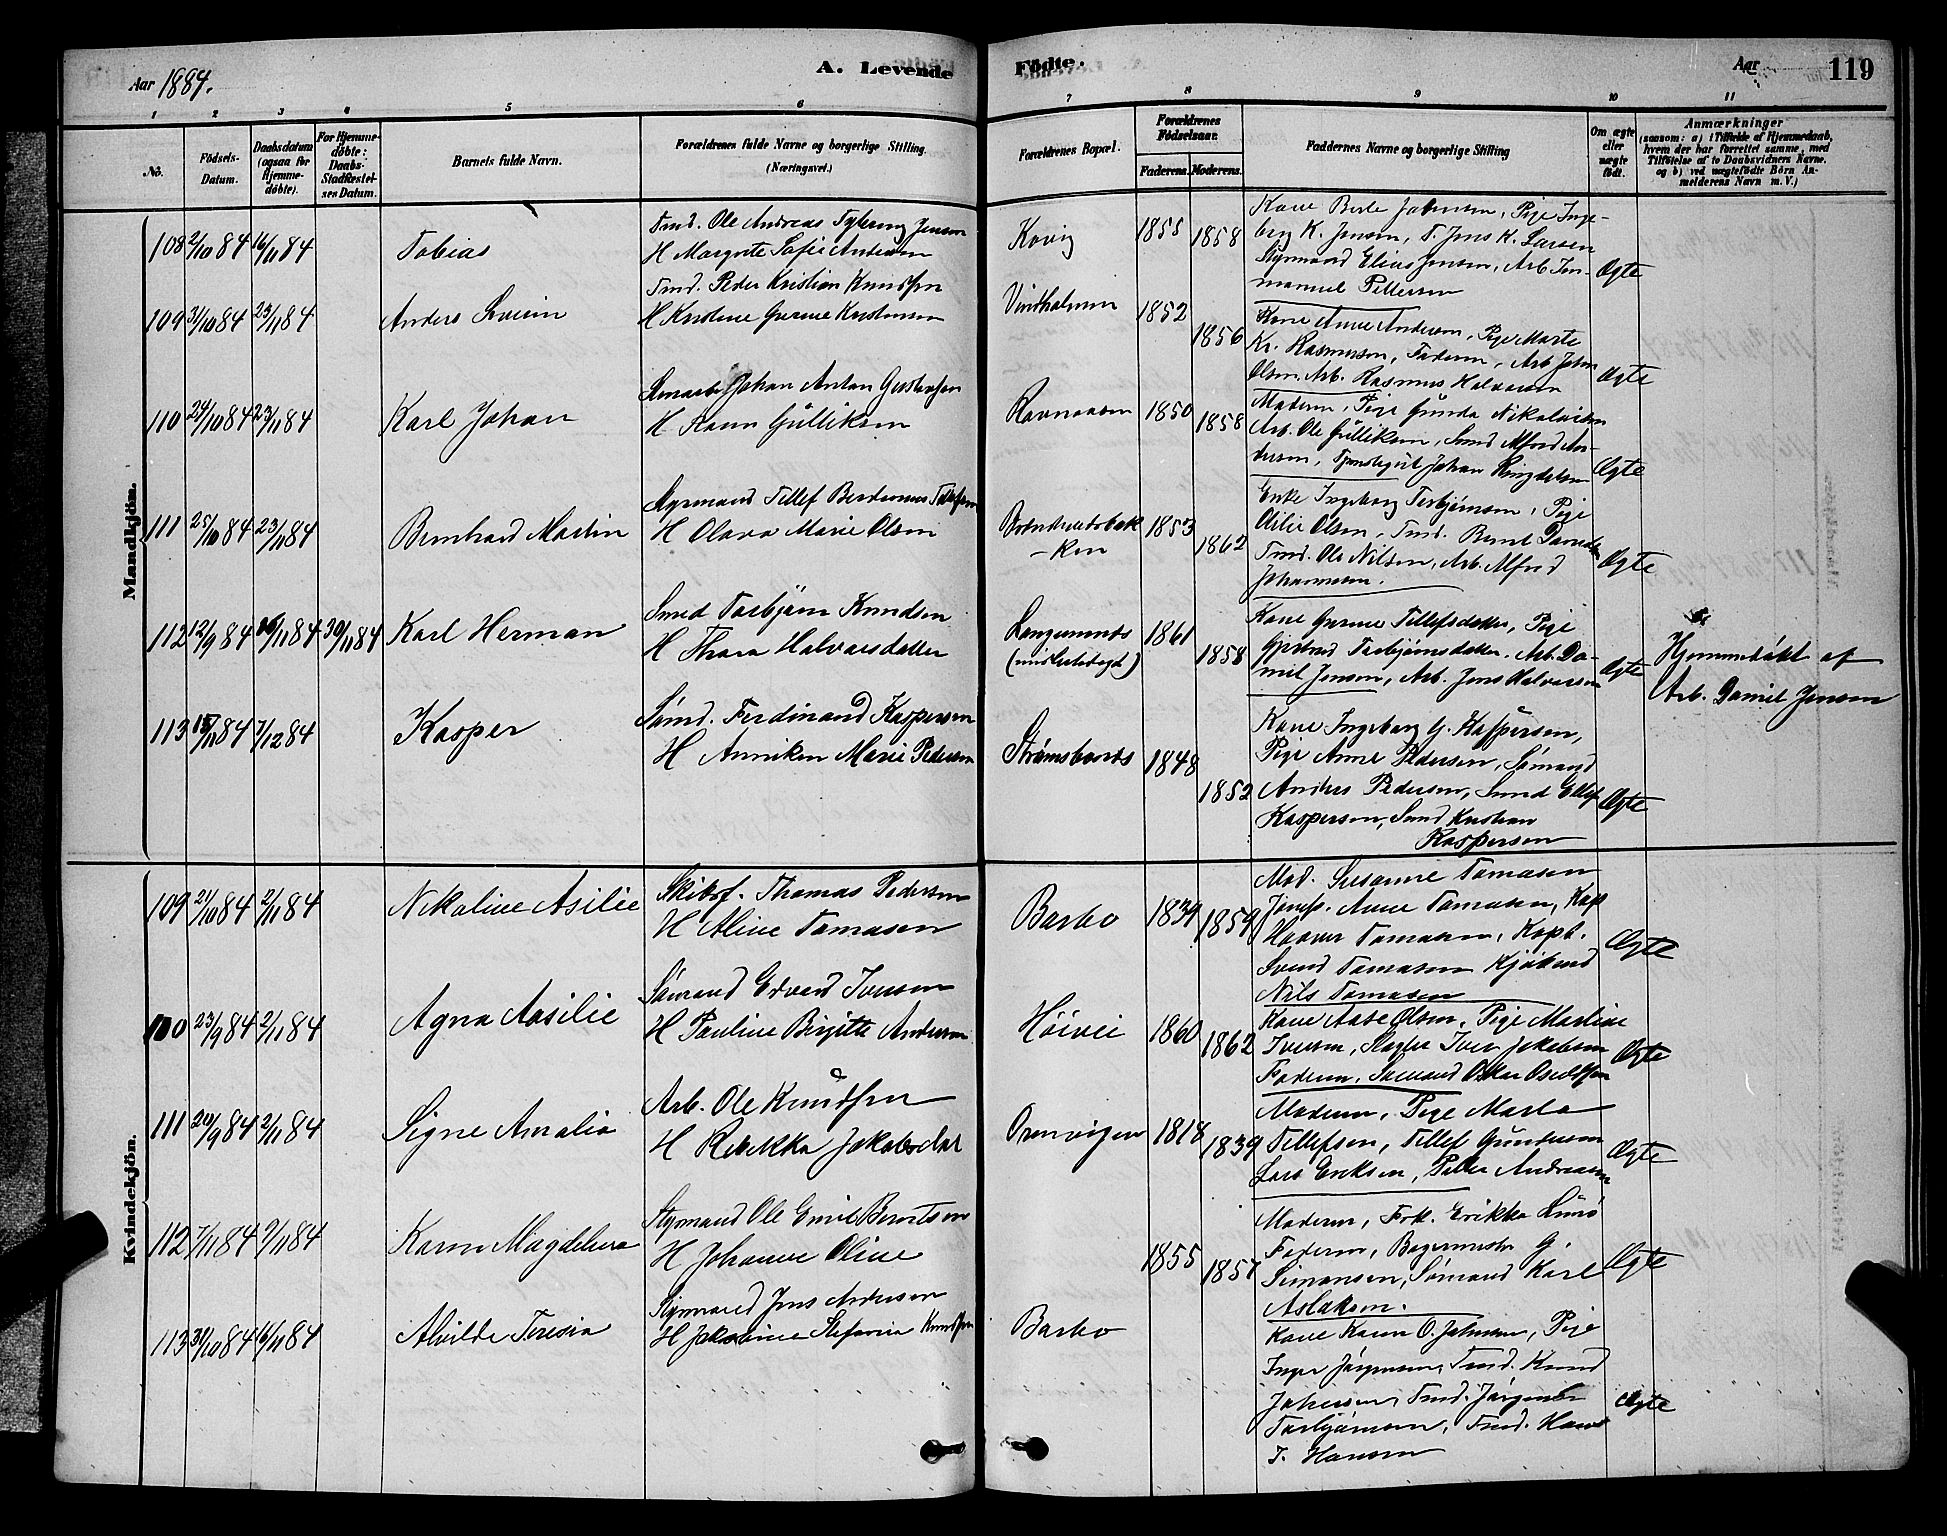 Aar 1884.
A. Levende
Fødte.
Aar
119
1 2 3 4 5 6 7 8 9 10 11
No.
Fødsels-Datum.
Daabsdatum (ogsaa for Hjemme-døbte).
For Hjemme-døbte: Daabs-Stadfæstel-ses Datum.
Barnets fulde Navn.
Forældrenes fulde Navne og borgerlige Stilling. (Næringsvei.)
Forældrenes Bopæl.
Forældrenes Fødselsaar.
Faderens. Moderens.
Faddernes Navne og borgerlige Stilling
Om ægte eller uægte født.
Anmærkninger
(saasom: a) i Tilfælde af Hjemmedaab, hvem der har forrettet samme, med Tilføielse af to Daabsvidners Navne. og b) ved uægtefødte Børn Anmelderens Navn m.V.)
Mandkjön.
108 2/10 84 16/11 84 Tobias
Tmd. Ole Andreas Jensen
H Margrete Sofie Andersen
1855 1858
Kone Berte Johnsen, Pige Inge-
berg K. Jensen, T. Jens K. Larsen
Styrmand Elias Jensen, Arb. Im-
manuel Pettersen
Ægte
109 31/10 84 23/11 84 Anders
Tmd. Peder Kristian Knudsen
H Kristine Gurine Kristensen
Vindholmen 1852 1856
Kone Anne Andersen, Pige Marte
Kr. Rasmussen, Faderen, Arb. John
Olsen. Arb. Rasmus Halvorsen
Ægte
110 24/10 84 23/11 84 Karl Johan
Johan Anton Gustafsen
H Karen Gulliksen
Ravnaasen 1850 1858
Moderen, Pige Gunda Nikolaisen
Arb. Ole Gulliksen, Smd Alfred An-
dersen, Tjenstegut Johan
Ægte
111 25/10 84 23/11 84 Bernhard Martin
Styrmand Tellef Tellefsen
H Olava Marie Olsen
1853 1862
Enke Ingeborg Torbjørnsen, Pige
Olsen, Tmd. Bernt
Tmd. Ole Nilsen, Arb. Alfred
Johannesen.
Ægte
112 12/9 84 16/11 84 30/11 84 Karl Herman
Smed Torbjørn Knudsen
H Thora Halvorsdatter
Langsunds
1861 1858
Kone Gurine Tellefsdatter, Pige
Gjertrud Torbjørnsdatter. Arb. Da-
niel Jensen, Arb. Jens Halvorsen
Ægte
Hjemmedøbt af
Arb. Daniel Jensen
113 15/11 84 7/12 84 Kasper
Sømd. Ferdinand Kaspersen
H Anniken Marie Pedersen
Strømsbonds 1848 1852
Kone Ingeborg G. Kaspersen,
Pige Anne Pedersen, Sømand
Anders Pedersen, Smd Ellef
Kaspersen, Smd Kristian
Kaspersen
Ægte
Kvindekjön.
109 21/10 84 2/11 84 Nikoline Asilie
Skibsf. Thomas Pedersen
H Aline Tomasen
Barbo 1839 1859
Mad. Susanne Tomasen
Jomfr. Anne Tomasen, Kap
Haaver Tomasen, Kapt.
Svend Tomasen Kjøbmd
Nils Tomasen
Ægte
110 23/9 84 2/11 84 Agna Aasilie
Sømand Edvard Iversen
H Pauline Birgitte Andersen
Høivei 1860 1862
Kone Aase Olsen, Pige Martine
Iversen, Iver Jakobsen
Faderen, Sømand Oskar
Ægte
111 20/9 84 2/11 84 Signe Amalia
Arb. Ole Knudsen
H Rebekka Jakobsdat
1818 1839
Moderen, Pige Marta
Tellefsen, Tellef Gundersen
Lars Eriksen, Peder Andreasen
Ægte
112 7/11 84 9/11 84 Karen Magdelena
Styrmand Ole Emil Berntsen
H Johanne Oline
1855 1857
Moderen, Frk. Erikka
Faderen, Bagermester G.
Simonsen, Sømand Karl
Aslaksen.
Ægte
113 31/10 84 16/11 84 Alvilde Teresia
Styrmand Jens Andersen
H Jakobine Stefania Knudsen
Barbo
Kone Karen O. Johnsen, Pige
Inger Jørgensen, Tmd. Knud
Johnsen, Tmd. Jørgen
Torbjørnsen, Tmd. Hans
T. Hansen
Ægte